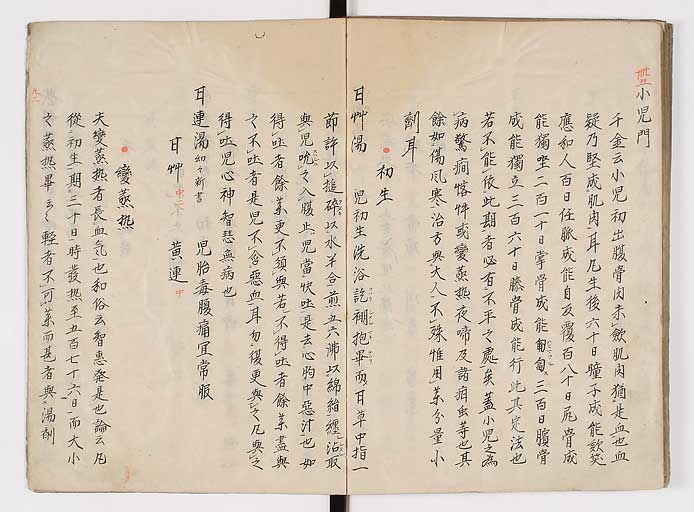 卅五
小児門
千金云小児初出腹骨肉未歛肌肉猶是血也血
疑乃堅成肌肉耳凡生後六十日瞳子成能欬笑
應和人百日任脈成能自反覆百八十日尻骨成
能獨坐二百一十日掌骨成能匍匐三百日臏骨
成能獨立三百六十日膝骨成能行此其定法也
若不能依此期者必有不平之處矣蓋小児之為
病驚癇客忤或變蒸熱夜啼及諸疳虫等也其
餘如傷風寒治方與大人不殊惟用藥分量小
劑耳
初生
甘艸湯 児初生洗浴訖裯抱畢而甘草中指一
節許以搥碎以水半合煎五六沸以綿纏沾取
與児吮之入腹止児當快吐是去心胸中惡汁也如
得吐者餘藥更不須與若不得吐者餘藥盡與
之不吐者是児不含惡血耳勿復更與之凡與之
得吐児心神智慧無病也
甘連湯 幼々新書 児胎毒腹痛宜常服
甘艸 中 黄連 中
變蒸熱
夫變蒸熱者長血氣也和俗云智惠発是也論云凡
從初生一期三十日時發熱至五百七十六日而大小
之蒸熱畢云々軽者不可藥而甚者與湯劑
九二